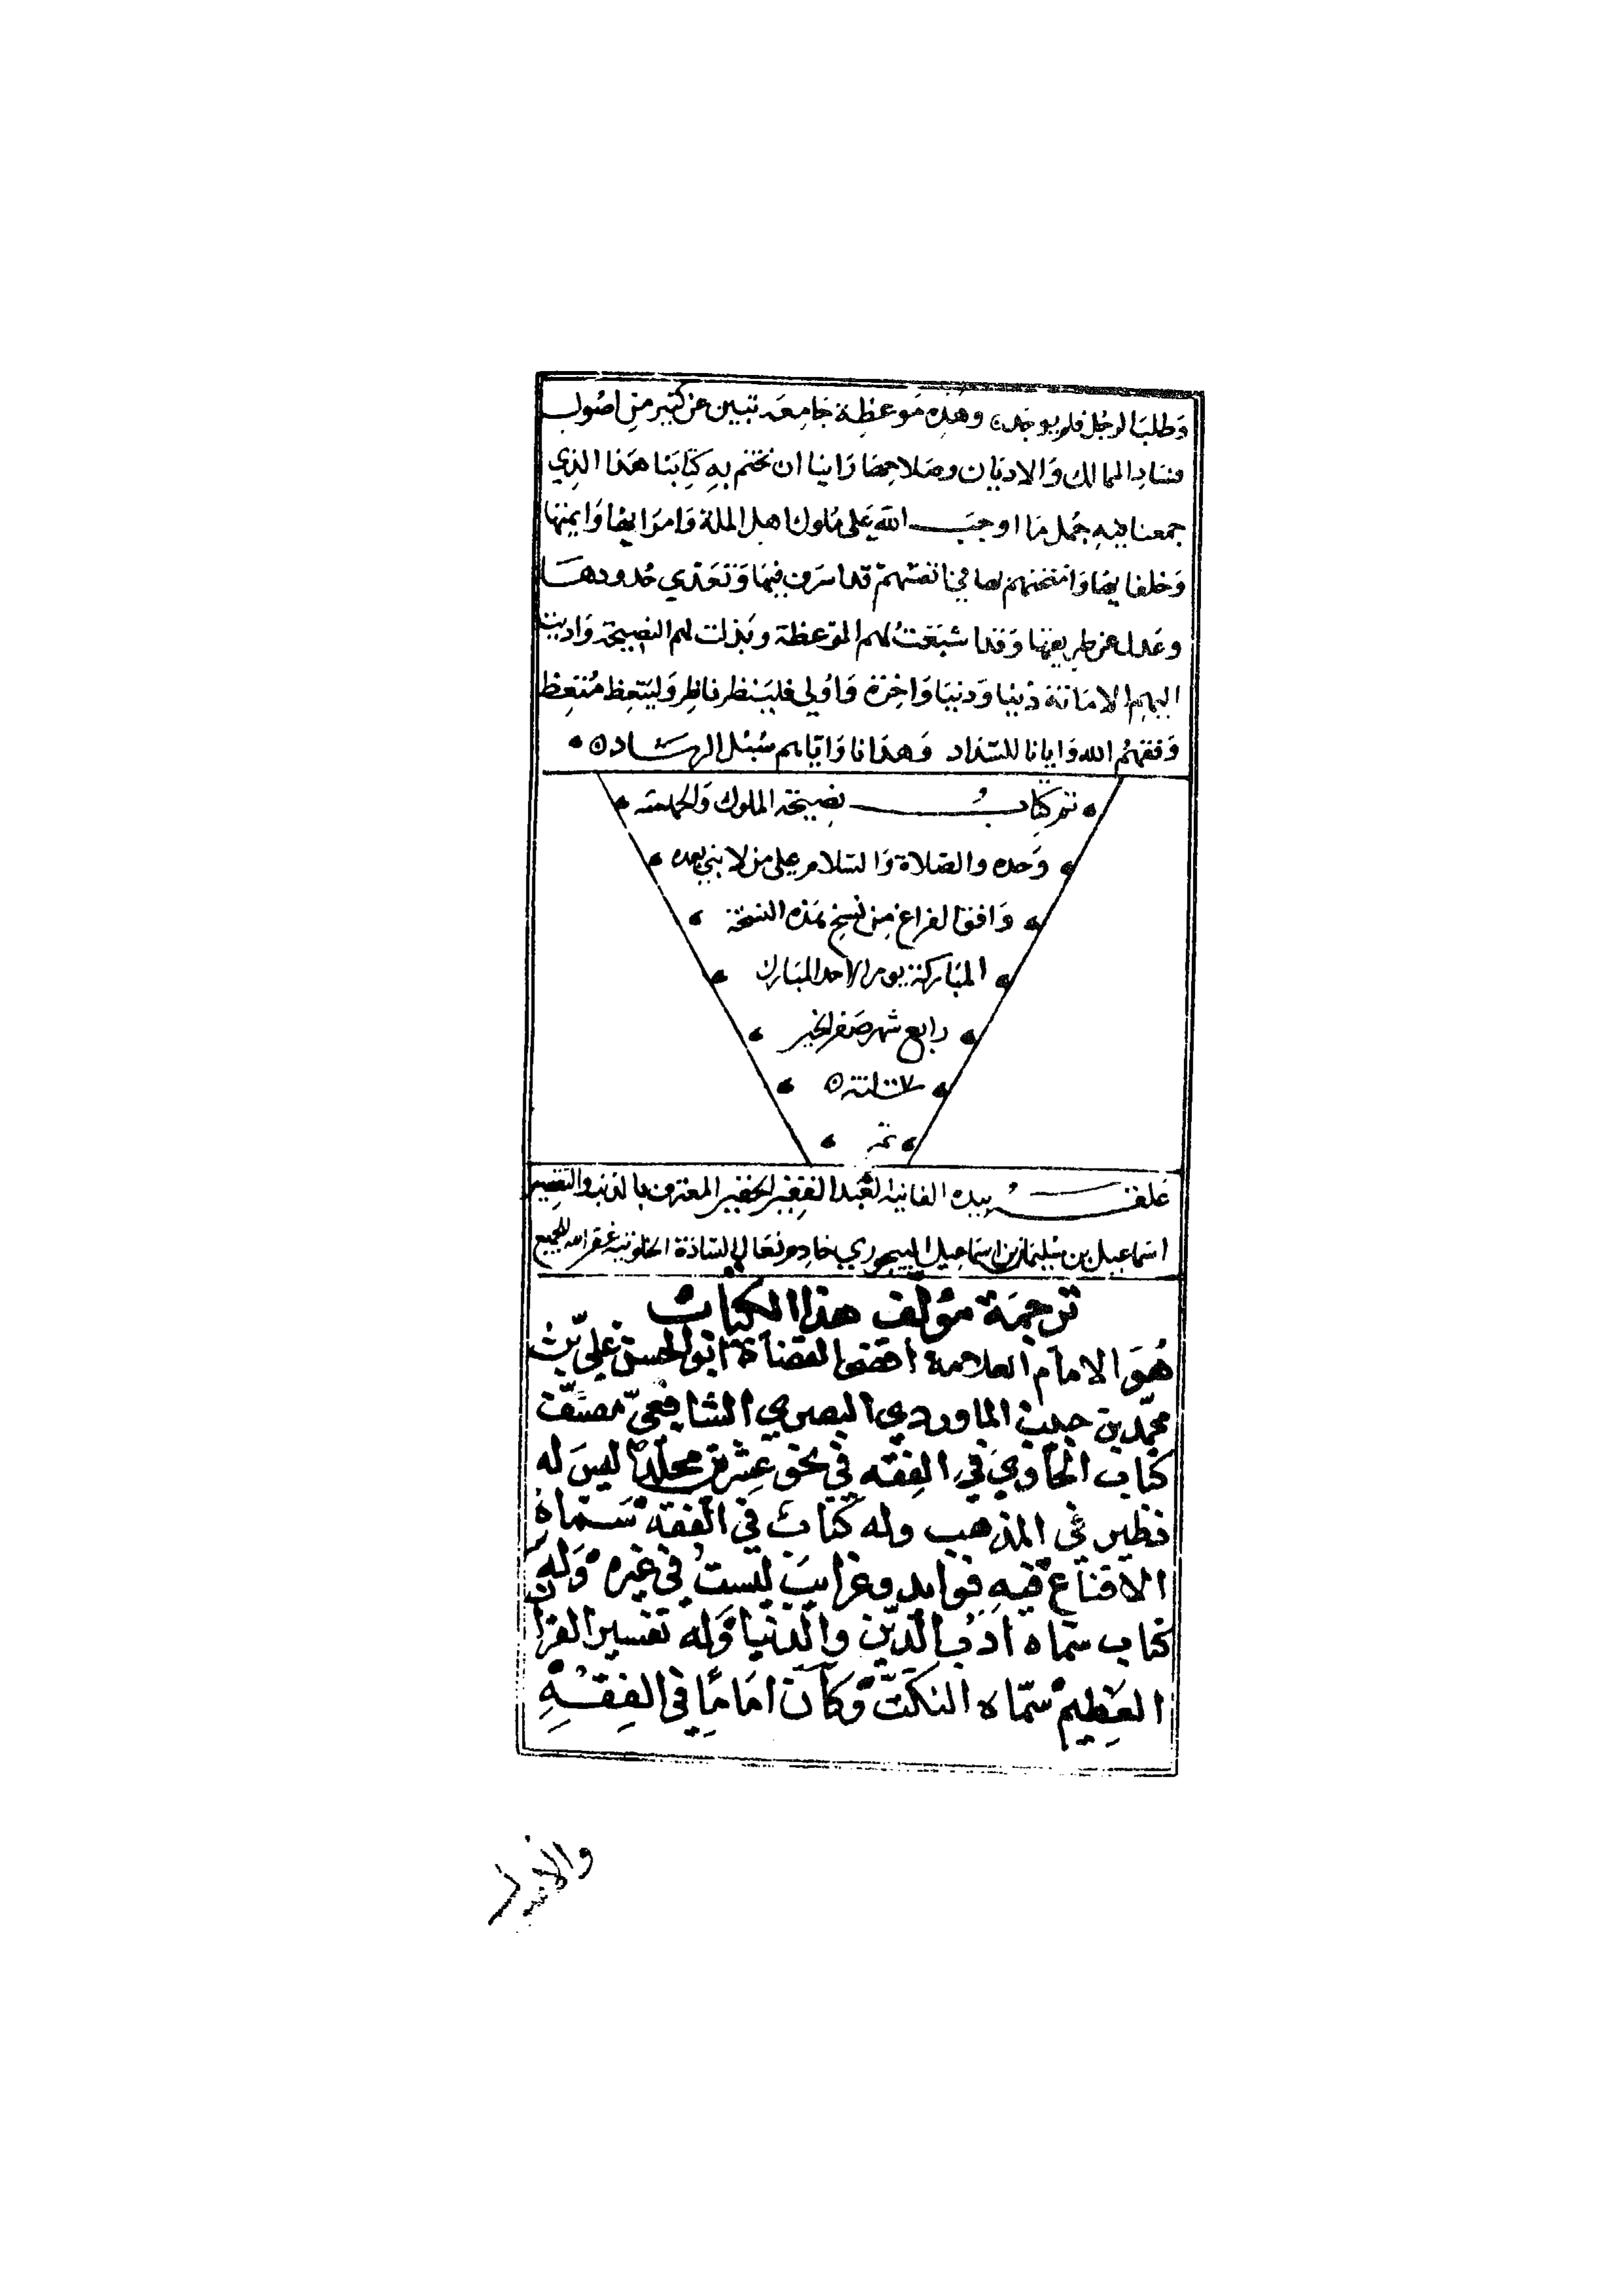 وطلب الرجل فلم يوجد، وهذه موعظة جامعة تبين عن كثير من اصول
فساد الممالك والاديان وصلاحها راينا ان نختم به كتابنا هذا الذي
جمعنا فيه جمل ما اوجب الله على ملوك اهل الملة وامرائها وايمتها
وخلفائها وامتحنهم بها في انفسهم قد اسرف فيها وتعدي حدودها
وعدل عن طريقتها وقد اشبعت لهم الموعظة وبذلت لهم النصيحة واديت
اليهم الامانة دينا ودنيا واخرة واولي فلينظر ناظر وليتعظ متعظ
وفقهم الله وايانا للسداد وهدانا واياهم سبل الرشاد
تم كتاب نصيحة الملوك والحمد لله
وحده والصلاة والسلام علي من لا نبي بعده
وافق الفراغ من نسخ هذه النسخة
المباركة يوم الاحد المبارك
رابع شهر صفر الخير
سنة
تم
علقه بيده الفانية العبد الفقير الحقير المعترف بالذنب والتقصير
اسماعيل بن سليمان بن اسماعيل البيجوري خادم نعال السادة الخلوتية غفر الله للجميع
ترجمة مؤلف هذا الكتاب
هو الامام العلامة اقضى القضاة ابو الحسن علي بن
محمد بن حبيب الماوردي البصري الشافعي مصنف
كتاب الحاوي في الفقه في نحو عشرين مجلدا ليس له
نظير في المذهب وله كتاب في الفقه سماه
الاقناع فيه فوايد وغرايب ليست في غيره وله
كتاب سماه ادب الدين والدنيا وله تفسير القران
العظيم سماه النكت وكان اماما في الفقه